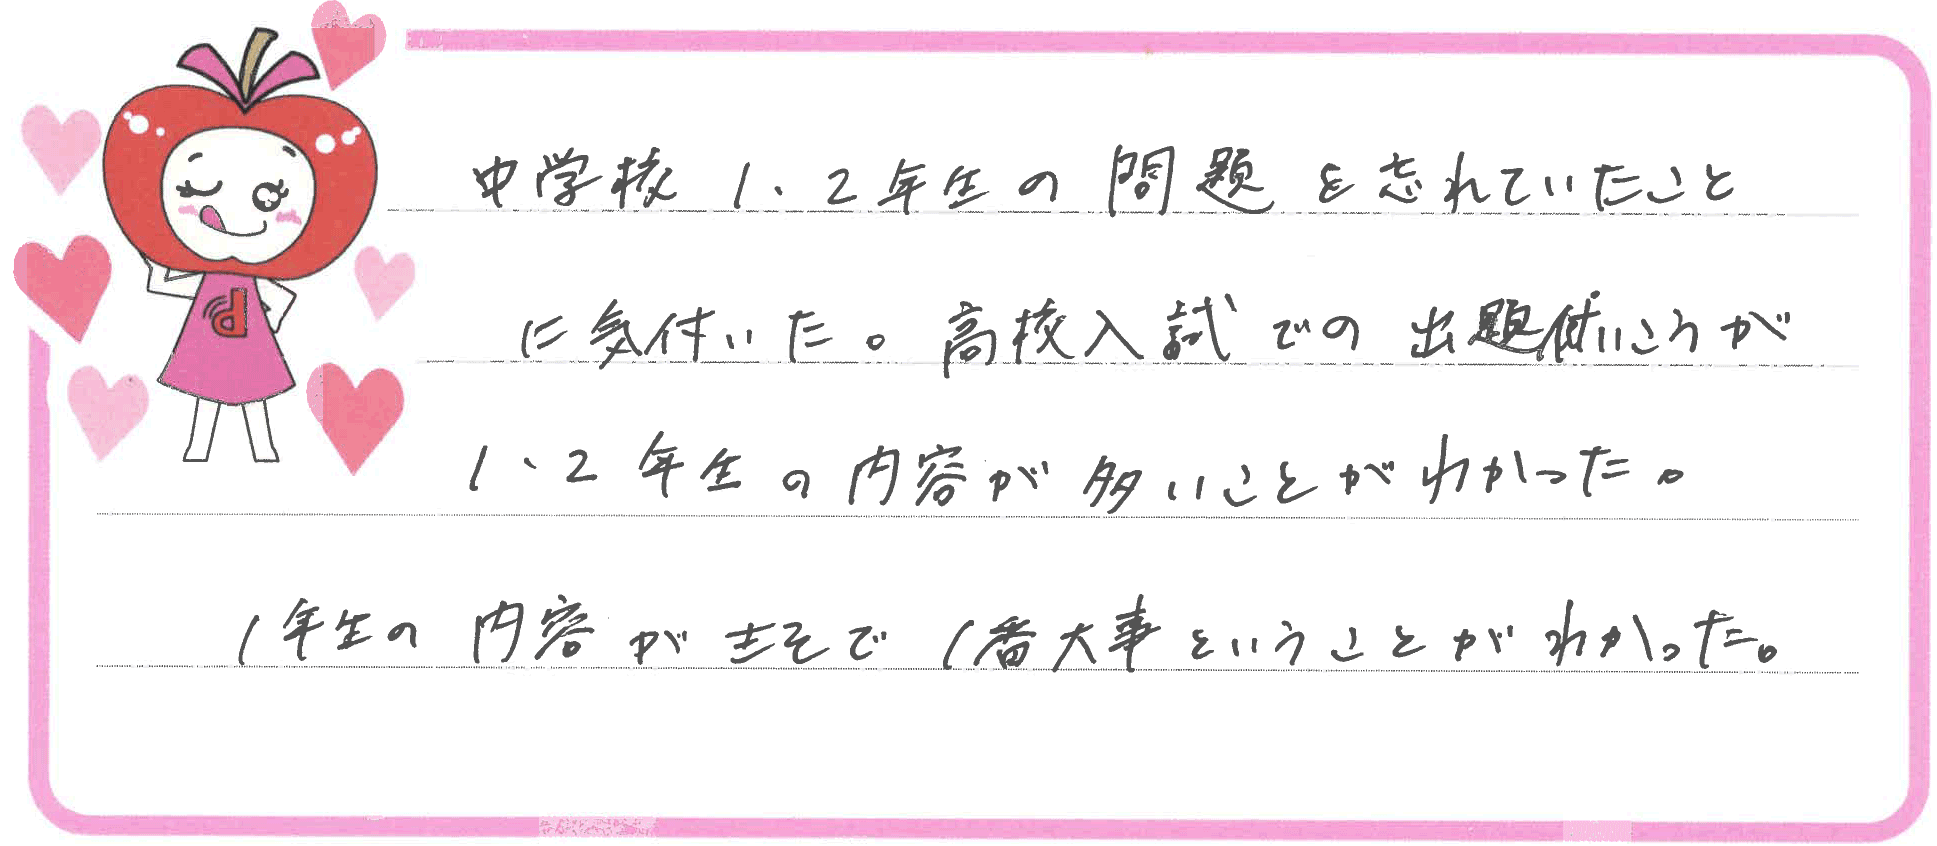 中学校1・2年生の問題を忘れていたこと
に気付いた。高校入試での出題けいこうが
1・2年生の内容が多いことがわかった。
1年生の内容がきそで1番大事ということがわかった。